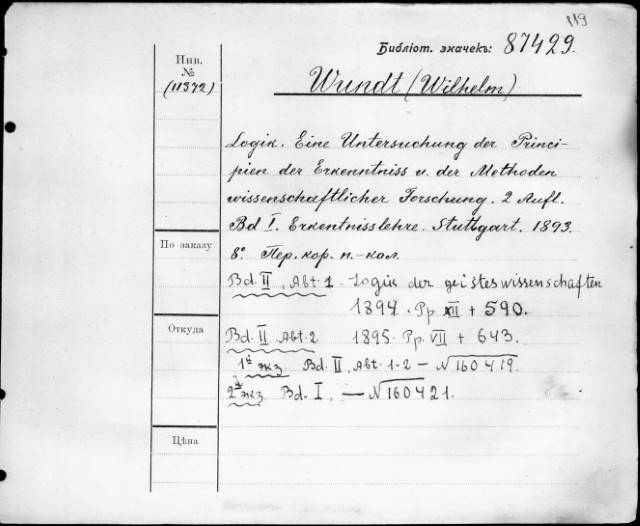 119
Библіот. значекъ: 87429.
Инв.
№
(11372)
Wundt (Wilhelm)
Logik. Eine Untersuchung der Princi-
pien der Erkenntniss u. der Methoden
wissenschaftlicher Forschung. 2 Aufl.
Bd I. Erkentnisslehre. Stuttgart. 1893.
По заказу
8°. Пер. кор. п.-кол.
Bd. II, Abt. 1. Logik der geisteswissenschaften
1894. Pp. XII + 590.
Откуда
Bd. II Abt. 2 1895. Pp. VII + 643.
1й экз. Bd. II, Abt. 1-2 — N 160419.
2й экз. Bd. I, — N 160421.
Цѣна